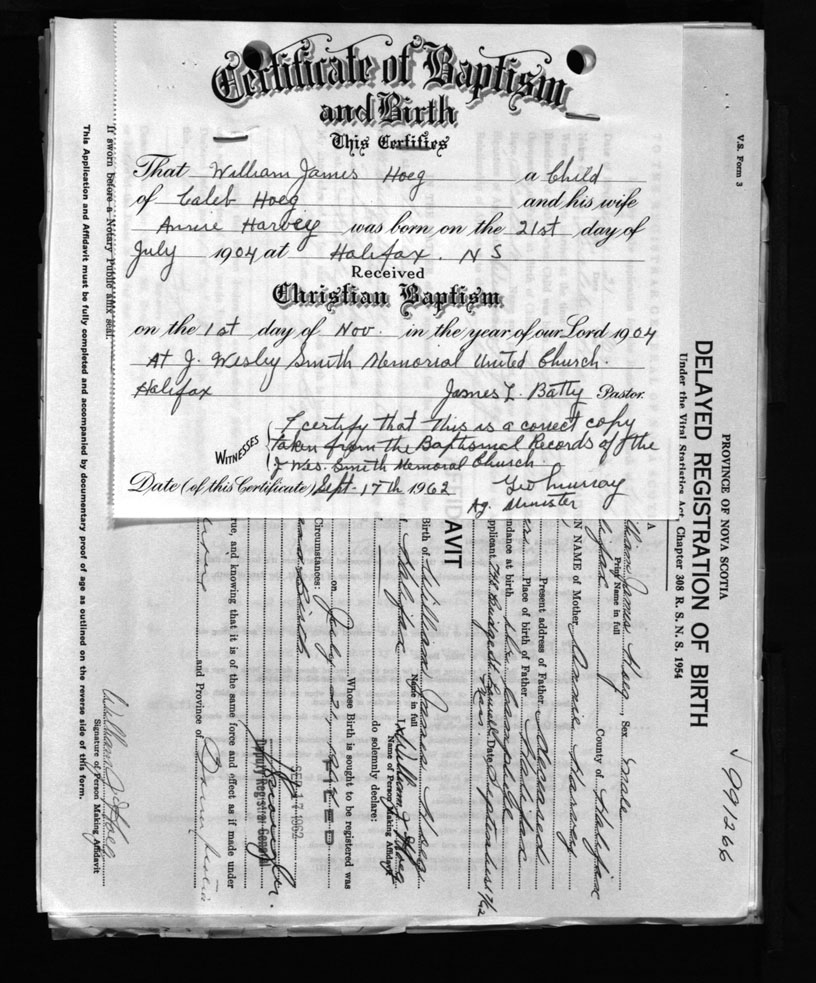 Certificate of Baptism
and Birth
This Certifies
That William James Hoeg a Child
of Caleb Hoeg and his wife
Annie Harvey was born on the 21st day of
July 1904 at Halifax. N S
Received
Christian Baptism
on the 1st day of Nov. in the year of our Lord 1904
At J. Wesley Smith Memorial United Church.
Halifax James L. Batty Pastor.
WITNESSES
I certify that this is a correct copy
taken from the Baptismal Records of the
J Wes. Smith Memorial Church.
Date (of this Certificate) Sept. 17th 1962 Geo Murray
Ag. Minister
V.S. Form 3
PROVINCE OF NOVA SCOTIA
DELAYED REGISTRATION OF BIRTH
Under the Vital Statistics Act, Chapter 308 R. S. N. S. 1954
√ 991266
James Hoeg, Sex male
Print Name in full
County of Halifax
NAME of Mother Annie Harvey
Present address of Father deceased
Place of birth of Father Halifax
ndance at birth Dr. Campbell
pplicant Date September 17/62
Mass.
A
AVIT
Birth of William James Hoeg
Name in full
Halifax I, William J Hoeg
Name of Person Making Affidavit
do solemnly declare:
Whose Birth is sought to be registered was
on July 21, 1904
Circumstances:
FILED
SEP 17 1962
Deputy Registrar General
rue, and knowing that it is of the same force and effect as if made under
and Province of
William J Hoeg
Signature of Person Making Affidavit
If sworn before a Notary Public affix seal.
This Application and Affidavit must be fully completed and accompanied by documentary proof of age as outlined on the reverse side of this form.